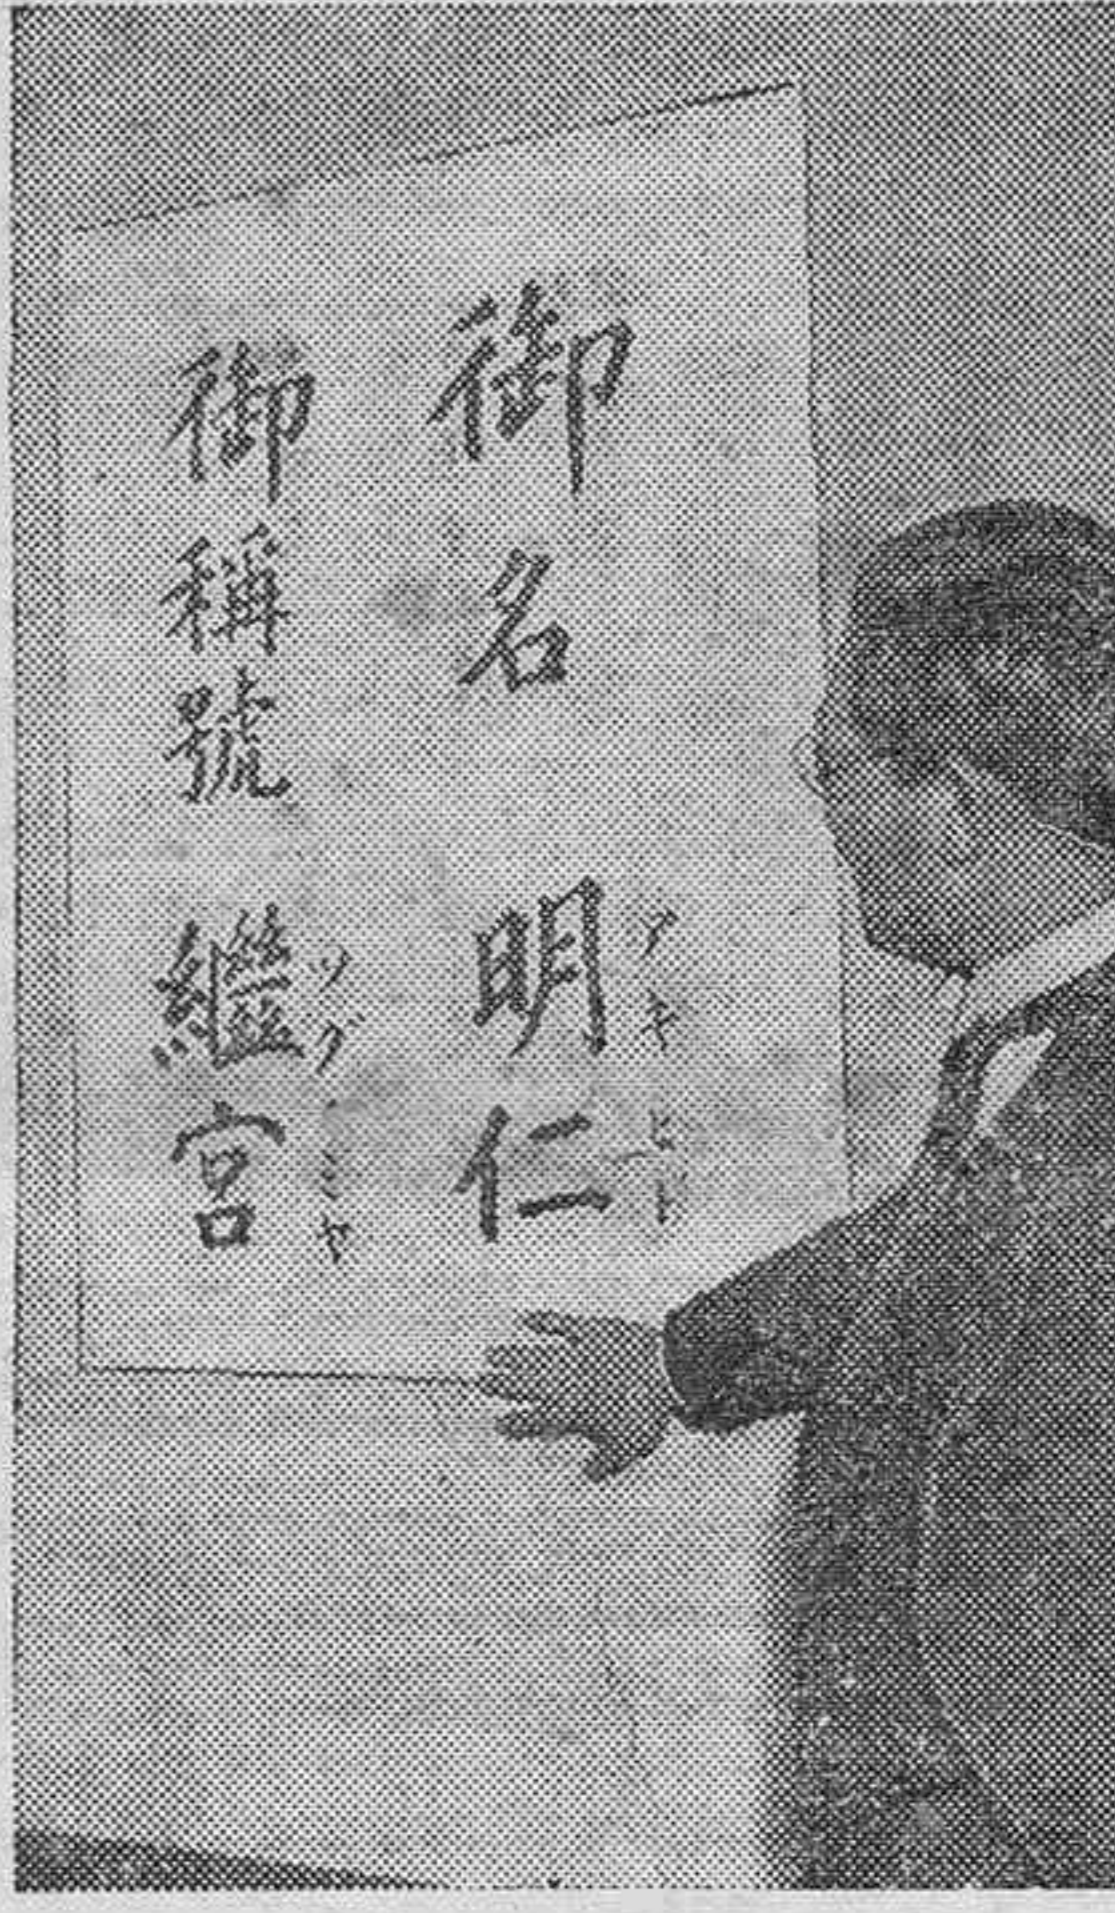 御名 明仁
アキヒト
御稱號 繼宮
ツグノミヤ